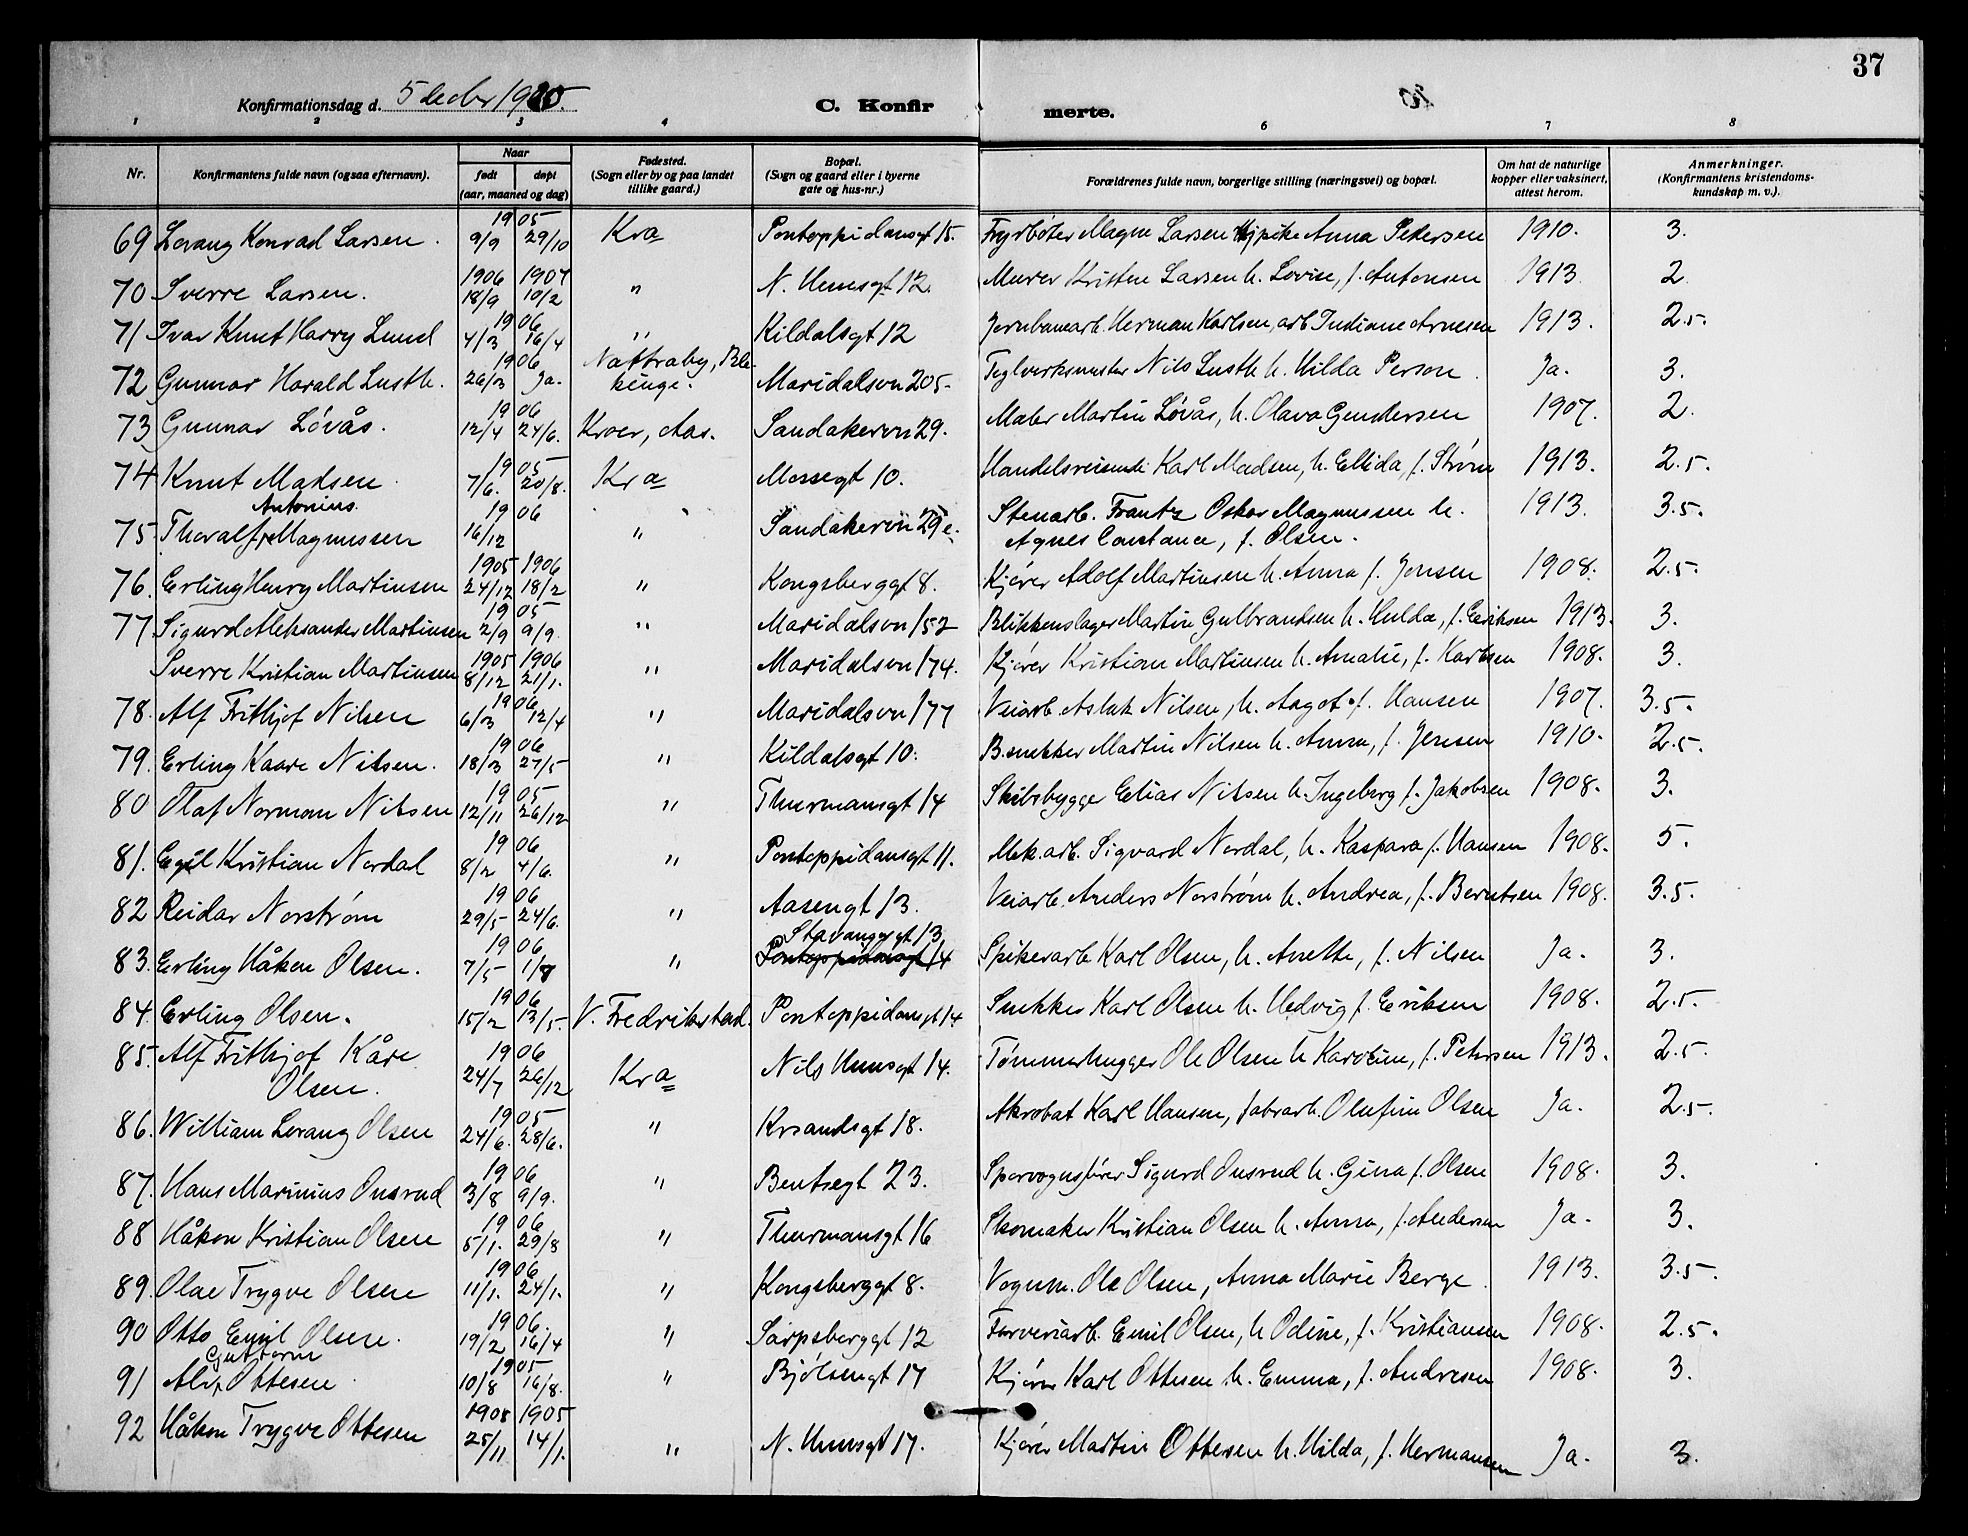 37
Konfirmationsdag d. 5 decbr 1920. C. Konfir merte.
1 2 3 4 6 7 8
Nr. Konfirmantens fulde navn (ogsaa efternavn). Naar født døpt (aar, maaned og dag) Fødested. (Sogn eller by og paa landet tillike gaard.) Bopæl. (Sogn og gaard eller i byerne gate og hus-nr.) Forældrenes fulde navn, borgerlige stilling (næringsvei) og bopæl. Om hat de naturlige kopper eller vaksinert, attest herom. Anmerkninger. (Konfirmantens kristendoms-kundskap m. v.).
69 Lorang Konrad Larsen. 1905 9/9 29/10 Kra Pontoppidansgt 15. Fyrbøter Magne Larsen Anna Pedersen 1910. 3.
70 Sverre Larsen. 1906 18/9 1907 10/2 " N. Huusgt 12. Murer Kristen Larsen h. Lovise, f. Antonsen 1913 2
71 Ivar Knut Harry Lund 1906 4/3 16/4 " Kildalsgt 12 Jernbanearb. Herman Karlsen, arb. Indiane Arnesen 1913. 2.5.
72 Gunnar Harald Lusth. 1906 26/3 Ja. Nattraby, Blekinge. Maridalsvn 205. Teglverksmester Nils Lusth h. Hilda Person. Ja. 3.
73 Gunnar Løvås. 1906 12/4 24/6. Kroer, Aas. Sandakervn 29. Maler Martin Løvås, h. Olava Gundersen 1907. 2.
74 Knut Madsen. 1905 7/6. 20/8. Kra Mossegt 10. Handelsreisende Karl Madsen, h. Ellida, f. Strøm 1913. 2.5.
Antonius
75. Thoralf Magnussen 1906 16/12 " Sandakervn 29 e. Stenarb. Frantz Oskar Magnussen h. 1913. 3.5.
Agnes Constance, f. Olsen.
76. Erling Henry Martinsen 1905 24/12 1906 18/2 " Kongsberggt 8. Kjører Adolf Martinsen h. Anna f. Jensen 1908. 2.5.
77 Sigurd Aleksander Martinsen 1905 2/9 9/9. " Maridalsvn 152 Blikkenslager Martin Gulbrandsen h. Hulda, f. Eriksen 1913. 3.
Sverre Kristian Martinsen 1905 8/12 1906 21/1. " Maridalsvn 174. Kjører Kristian Martinsen h. Amalie, f. Karlsen 1908. 3.
78. Alf Frithjof Nilsen 1906 6/3 12/4 " Maridalsvn 177 Veiarb. Aslak Nilsen, h. Aagot f. Hansen 1907. 3.5.
79. Erling Kaare Nilsen. 1906 18/3 27/5 " Kildalsgt 10. B.snekker Martin Nilsen h. Anna, f. Jensen 1910. 2.5.
80 Olaf Norman Nilsen 1905 12/11 26/12 " Thurmansgt 14 Skibsbygge Elias Nilsen h. Ingeborg f. Jakobsen 1908. 3.
81. Egil Kristian Nordal 1906 8/2 4/6. " Pontoppidansgt 11. Mek. arb. Sigvard Nordal, h. Kaspara f. Hansen 1908. 5.
82 Reidar Norstrøm 1906 29/5 24/6. " Aasengt 13. Veiarb. Anders Norstrøm h. Andrea, f. Berntsen 1908. 3.5.
Stavangergt 13
83. Erling Håkon Olsen. 1906 7/5 1/7 " Pontoppidansgt 14 Spikerarb Karl Olsen, h. Anette, f. Nilsen Ja. 3.
84. Erling Olsen. 1906 15/2 13/5. V. Fredrikstad. Pontoppidansgt 14 Snekker Karl Olsen h. Hedvig f. Eriksen 1908. 2.5.
85. Alf Frithjof Kåre 1906 24/7 26/12 Kra Nils Huusgt 14. Tømmerhugger Ole Olsen h. Karoline, f. Petersen 1913. 2.5.
Olsen.
86. William Lorang Olsen 1905 24/6. 28/6. " Krsandsgt 18. Akrobat Karl Hansen, fabrarb. Olufine Olsen Ja. 2.5.
87. Hans Marinius Onsrud 1906 3/8 9/9. " Bentsegt 23. Sporvognsfører Sigurd Onsrud h. Gina f. Olsen 1908. 3.
88 Håkon Kristian Olsen 1906 5/1. 29/8 " Thurmansgt 16 Skomaker Kristian Olsen h. Anna, f. Andersen Ja. 3.
89. Olae Trygve Olsen 1906 11/1. 24/1. " Kongsberggt 8. Vognm. Ole Olsen, Anna Marie Berge. 1913. 3.5.
90 Otto Emil Olsen. 1906. 19/2 16/4 " Sarpsborggt 12 Farveriarb. Emil Olsen, h. Odine, f. Kristiansen 1908. 2.5.
Guttorm
91 Alv Ottesen. 1905 10/8 16/8. " Bjølsengt 17 Kjører Karl Ottesen h. Emma, f. Andresen 1908. 3.
92 Håkon Trygve Ottesen 1905 25/11 1905 14/1. " N. Huusgt 17. Kjører Martin Ottesen h. Hilda, f. Hermansen Ja. 3.